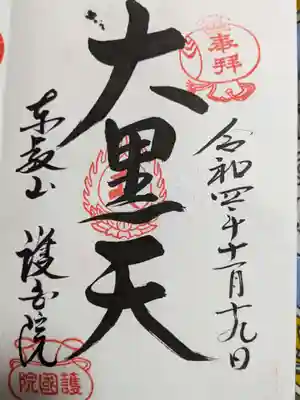 奉拝
令和四年十一月十九日
大黒天
東叡山 護国院
護國院